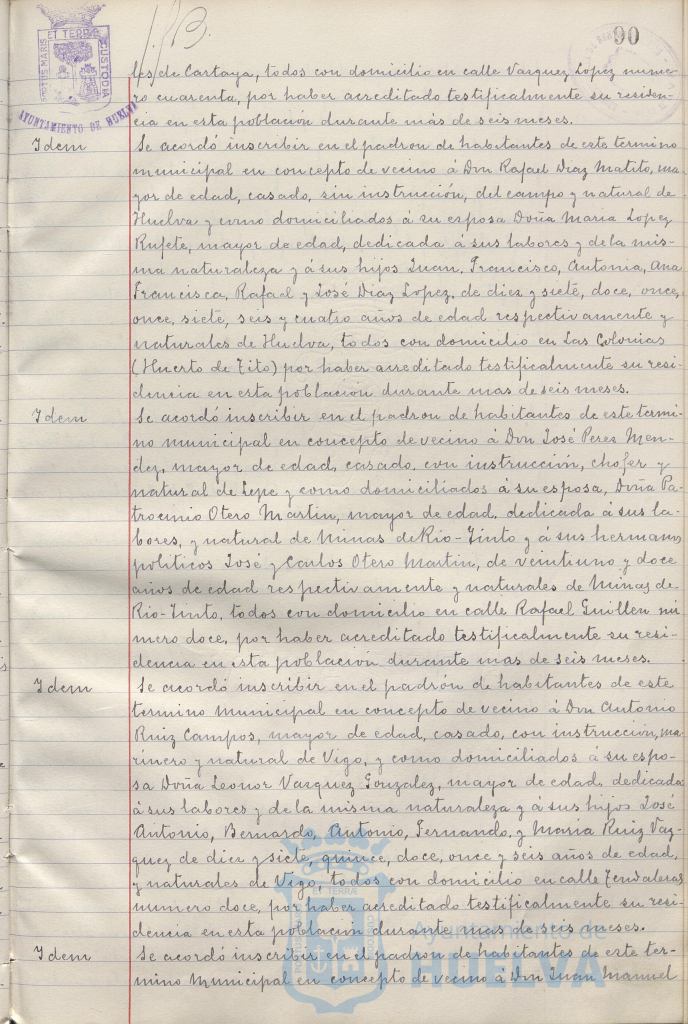 90
PORTUS MARIS ET TERRAE CUSTODIA
AYUNTAMIENTO DE HUELVA
les de Cartaya, todos con domicilio en calle Vasquez Lopez nume-
ro cuarenta, por haber acreditado testificalmente su residen-
cia en esta población durante más de seis meses.
Idem
Se acordó inscribir en el padron de habitantes de este termino
municipal en concepto de vecino á Don Rafael Diaz Matito, ma-
yor de edad, casado, sin instrucción, del campo y natural de
Huelva y como domiciliados á su esposa Doña Maria Lopez
Rufete, mayor de edad, dedicada á sus labores y de la mis-
ma naturaleza y á sus hijos Juan, Francisco, Antonia, Ana
Francisca, Rafael y José Diaz Lopez, de diez y siete, doce, once,
once, siete, seis y cuatro años de edad respectivamente y
naturales de Huelva, todos con domicilio en Las Colonias
(Huerto de Tito) por haber acreditado testificalmente su resi-
dencia en esta población durante mas de seis meses.
Idem
Se acordó inscribir en el padron de habitantes de este termi-
no municipal en concepto de vecino á Don José Peres Men-
dez, mayor de edad, casado, con instrucción, chofer y
natural de Lepe y como domiciliados á su esposa, Doña Pa-
trocinio Otero Martin, mayor de edad, dedicada á sus la-
bores, y natural de Minas de Rio-Tinto y á sus hermanos
politicos José y Carlos Otero Martin, de veintiuno y doce
años de edad respectivamente y naturales de Minas de
Rio-Tinto, todos con domicilio en calle Rafael Guillen nú
mero doce, por haber acreditado testificalmente su resi-
dencia en esta población durante mas de seis meses.
Idem
Se acordó inscribir en el padrón de habitantes de este
termino municipal en concepto de vecino á Don Antonio
Ruiz Campos, mayor de edad, casado, con instrucción, ma-
rinero y natural de Vigo, y como domiciliados á su espo-
sa Doña Leonor Vasquez Gonzalez, mayor de edad, dedicada
á sus labores y de la misma naturaleza y á sus hijos José
Antonio, Bernardo, Antonio, Fernando, y Maria Ruiz Vaz-
quez de diez y siete, quince, doce, once y seis años de edad,
y naturales de Vigo, todos con domicilio en calle Tendaleras
numero doce, por haber acreditado testificalmente su resi-
dencia en esta población durante mas de seis meses.
Idem
Se acordó inscribir en el padron de habitantes de este ter-
mino municipal en concepto de vecino á Don Juan Manuel
Ayuntamiento de
HUELVA